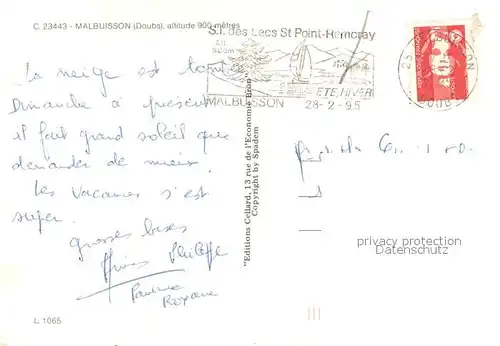 C. 23443 - MALBUISSON (Doubs), altitude 900 mètres
S.I. des Lacs St Point-Remoray
ETE, HIVER
MALBUISSON
28-2-95
La neige est tombée
Dimanche à présent
il fait grand soleil que
demander de mieux.
Les vacances c'est
super.
grosses bises
Philippe
Pauline
Roxane
"Editions Cellard, 13 rue de l'Economie Bron"
Copyright by Spadem
privacy protection
Datenschutz
L 1065